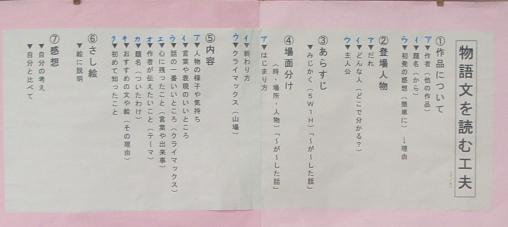 物語文を読む工夫
①作品について
ア▼作者（他の作品）
イ▼題名（から）
ウ▼初発の感想（簡単に）→理由
②登場人物
ア▼だれ
イ▼どんな人（どこで分かる？）
ウ▼主人公
③あらすじ
▼みじかく（５Ｗ１Ｈ）「～が～した話」
④場面分け
（時・場所・人物）「～が～した話」
ア▼はじまり方
イ▼終わり方
ウ▼クライマックス（山場）
⑤内容
ア▼人物の様子や気持ち
イ▼言葉や表現のいいところ
ウ▼話の一番いいところ（クライマックス）
エ▼心に残ったこと（言葉や出来事）
オ▼作者が伝えたいこと（テーマ）
カ▼題名（のついたわけ）
キ▼おすすめの文や絵（その理由）
ク▼初めて知ったこと
⑥さし絵
▼絵に説明
⑦感想
▼自分の考え
▼自分と比べて